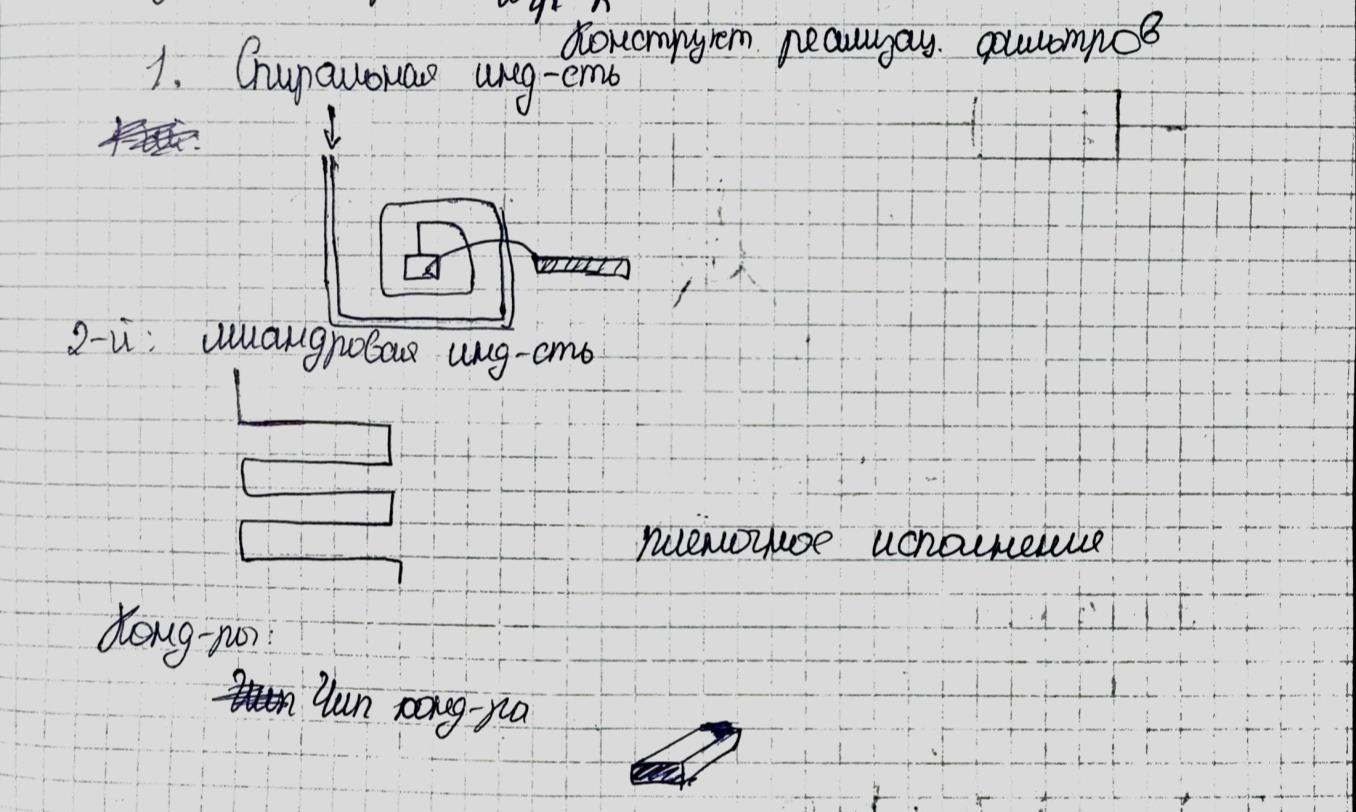 Конструкт. реализац. фильтров
1. Спиральная инд-сть
2-й: миандровая инд-сть
плёночное исполнение
Конд-ры:
Чип конд-ра